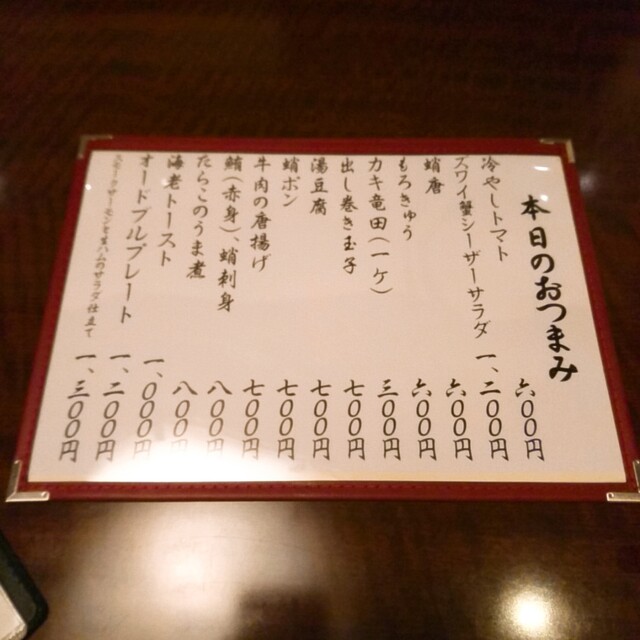 本日のおつまみ
冷やしトマト 六〇〇円
ズワイ蟹シーザーサラダ 一、二〇〇円
蛸唐 六〇〇円
もろきゅう 六〇〇円
カキ竜田(一ケ) 三〇〇円
出し巻き玉子 七〇〇円
湯豆腐 七〇〇円
蛸ポン 七〇〇円
牛肉の唐揚げ 七〇〇円
鮪(赤身)、蛸刺身 八〇〇円
たらこのうま煮 八〇〇円
海老トースト 一、〇〇〇円
オードブルプレート 一、二〇〇円
スモークサーモンと生ハムのサラダ仕立て 一、三〇〇円